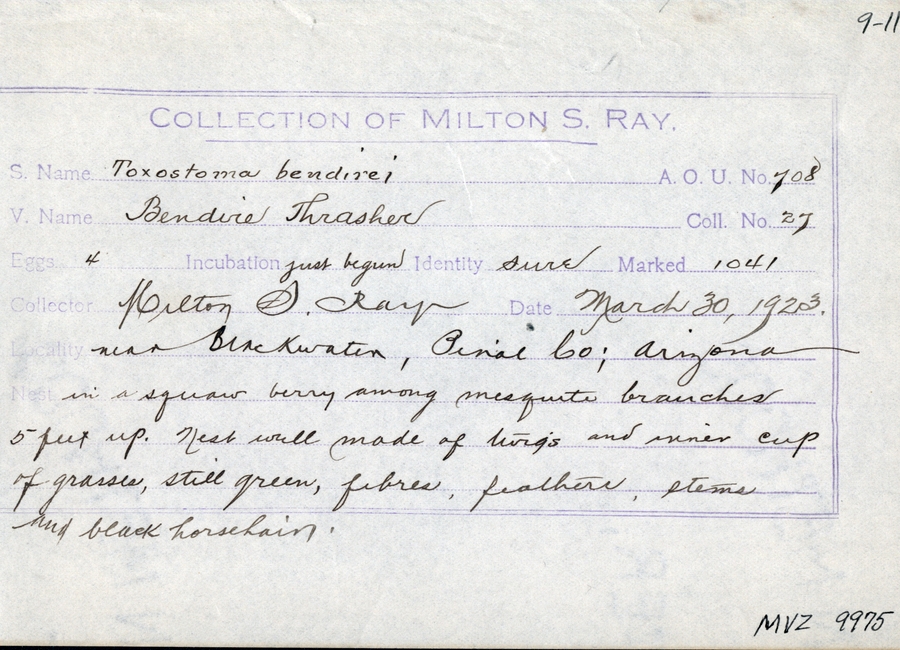 9-11
COLLECTION OF MILTON S. RAY.
S. Name Toxostoma bendirei A. O. U. No. 708
V. Name Bendire Thrasher Coll. No. 27
Eggs 4 Incubation just begun Identity sure Marked 1041
Collector Milton S. Ray Date March 30, 1923.
Locality near Blackwater, Pinal Co; Arizona
Nest in a squaw berry among mesquite branches
5 feet up. Nest well made of twigs and inner cup
of grasses, still green, fibres, feathers, stems
and black horsehair.
MVZ 9975